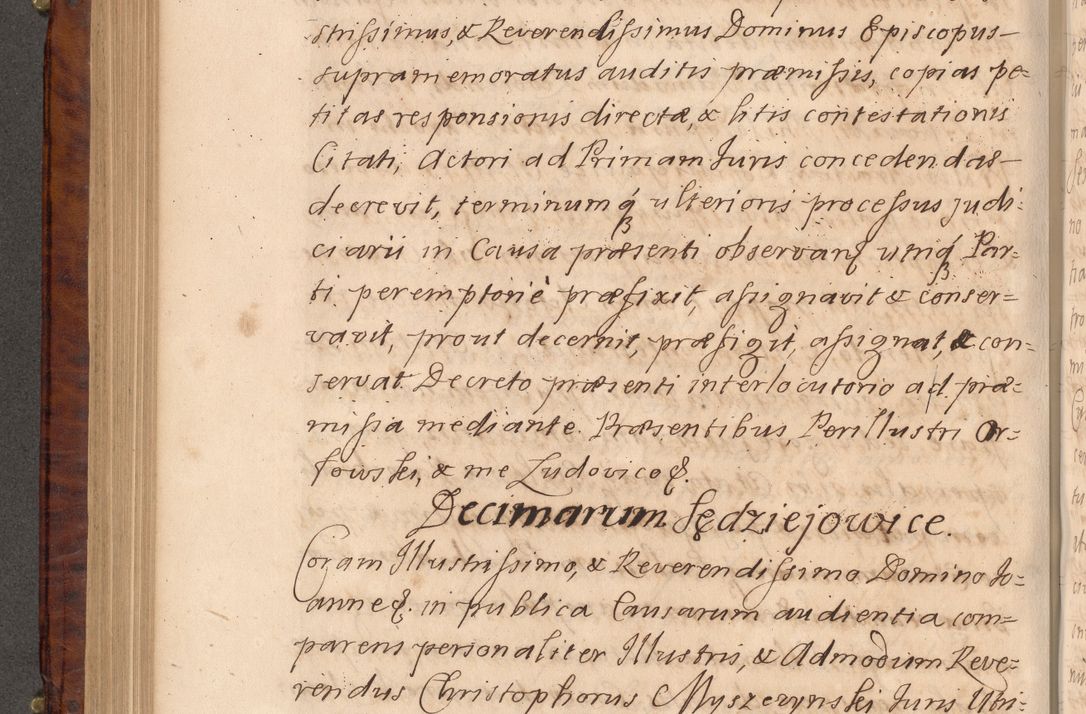 strissimus, & Reverendissimus Dominus Episcopus
supramemoratus auditis præmissis, copias pe=
titas responsionis directæ, & litis contestationis
Citati, Actori ad Primam Juris concedendas
decrevit, terminumq́ ulterioris processus judi=
ciarii in Causa præsenti observan utriq́ Par=
ti peremptoriè præfixit, assignavit & conser=
vavit, prout decernit, præfigit, assignat, & con=
servat Decreto præsenti interlocutorio ad præ=
missa mediante. Præsentibus, Perillustri Or=
łowski, & me Ludovico &.
Decimarum Sędziejowice.
Coram Illustrissimo, & Reverendissimo Domino Jo=
anne &. in publica Causarum audientia com=
parens personaliter Illustris, & Admodum Reve=
rendus Christophorus Myszczynski Juris Utri=